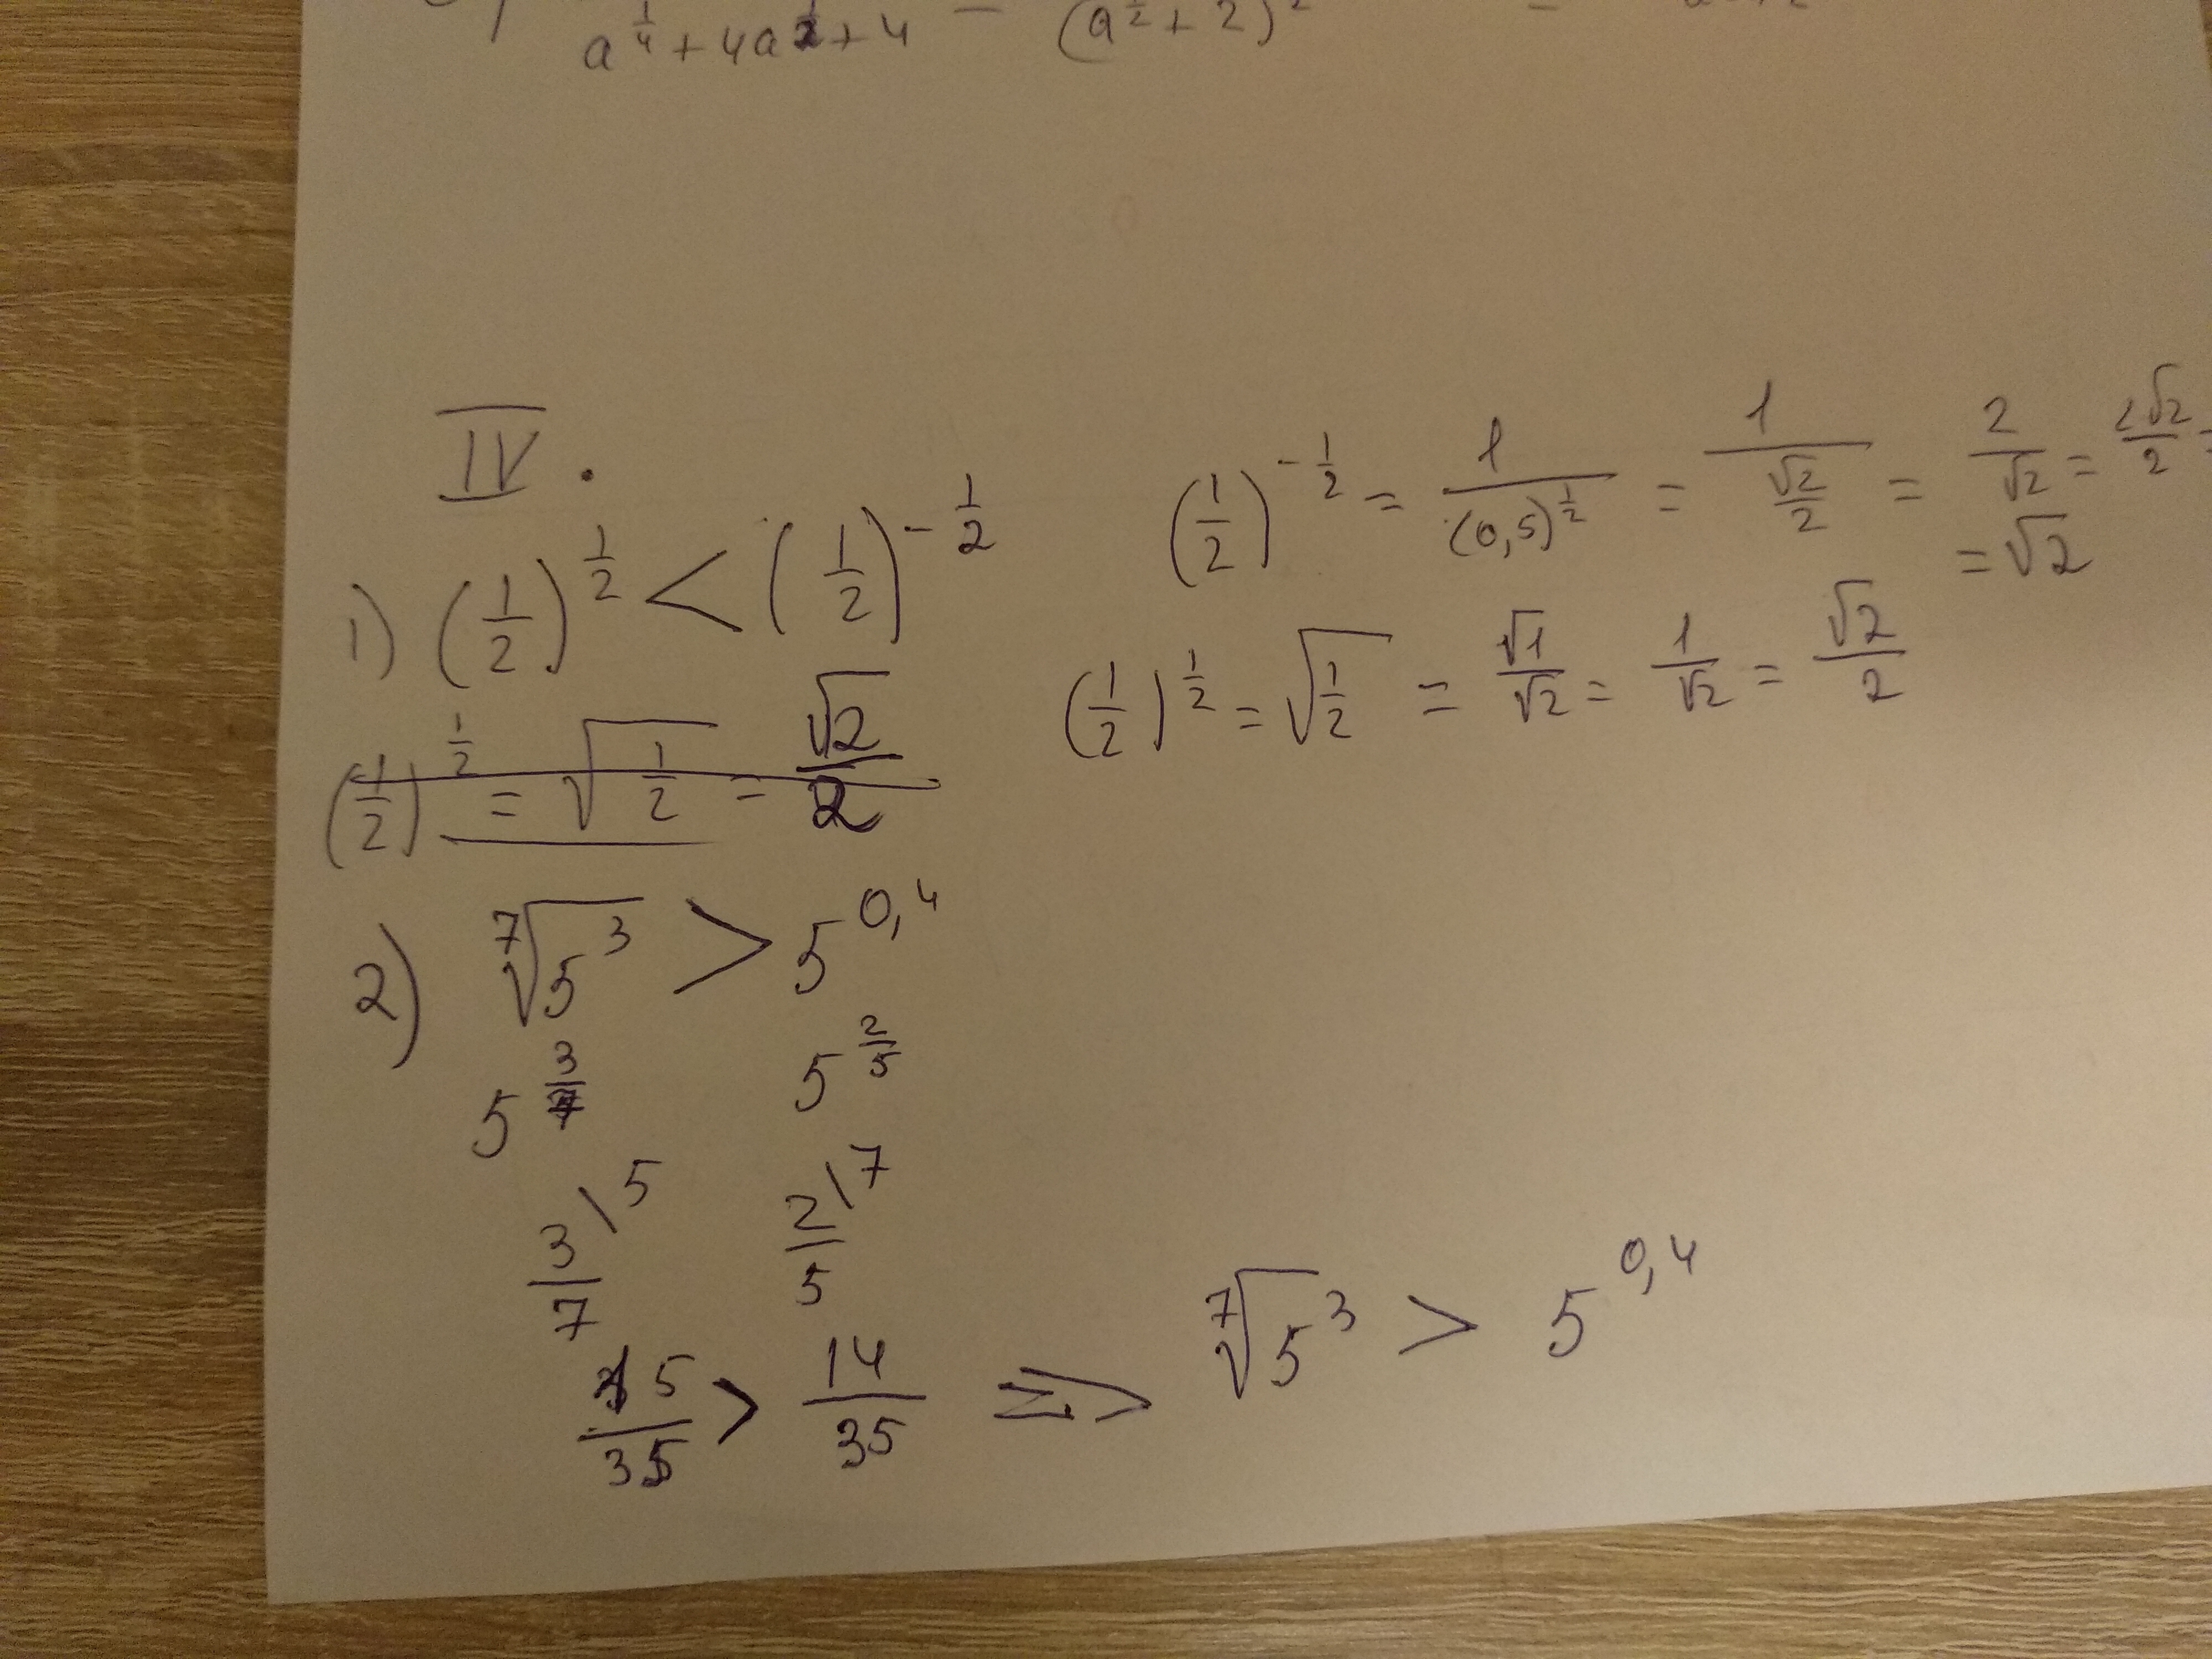 a^(1/4) + 4a^(1/2) + 4 = (a^(1/2) + 2)² =
IV.
1) (1/2)^(1/2) < (1/2)^(-1/2)
(1/2)^(-1/2) = 1/(0,5)^(1/2) = 1/(√2/2) = 2/√2 = 2√2/2 =
= √2
(1/2)^(1/2) = √(1/2) = √2/2
(1/2)^(1/2) = √(1/2) = √1/√2 = 1/√2 = √2/2
2) ⁷√5³ > 5^0,4
5^(3/7) 5^(2/5)
3/7 \5 2/5 \7
15/35 > 14/35 ⇒ ⁷√5³ > 5^0,4